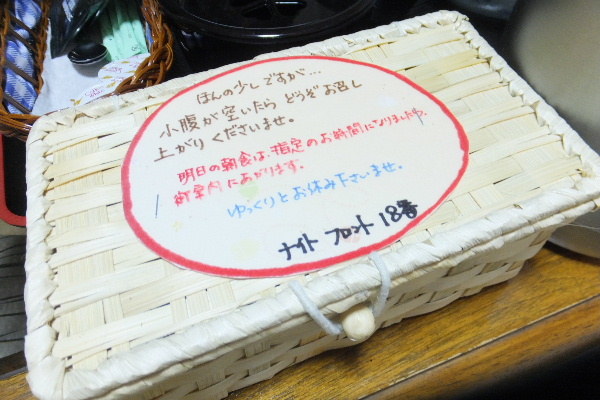 ほんの少しですが…
小腹が空いたら どうぞお召し
上がりくださいませ。
明日の朝食は、指定のお時間になりましたら、
御案内にあがります。
ゆっくりとお休み下さいませ。
ナイト フロント 18番